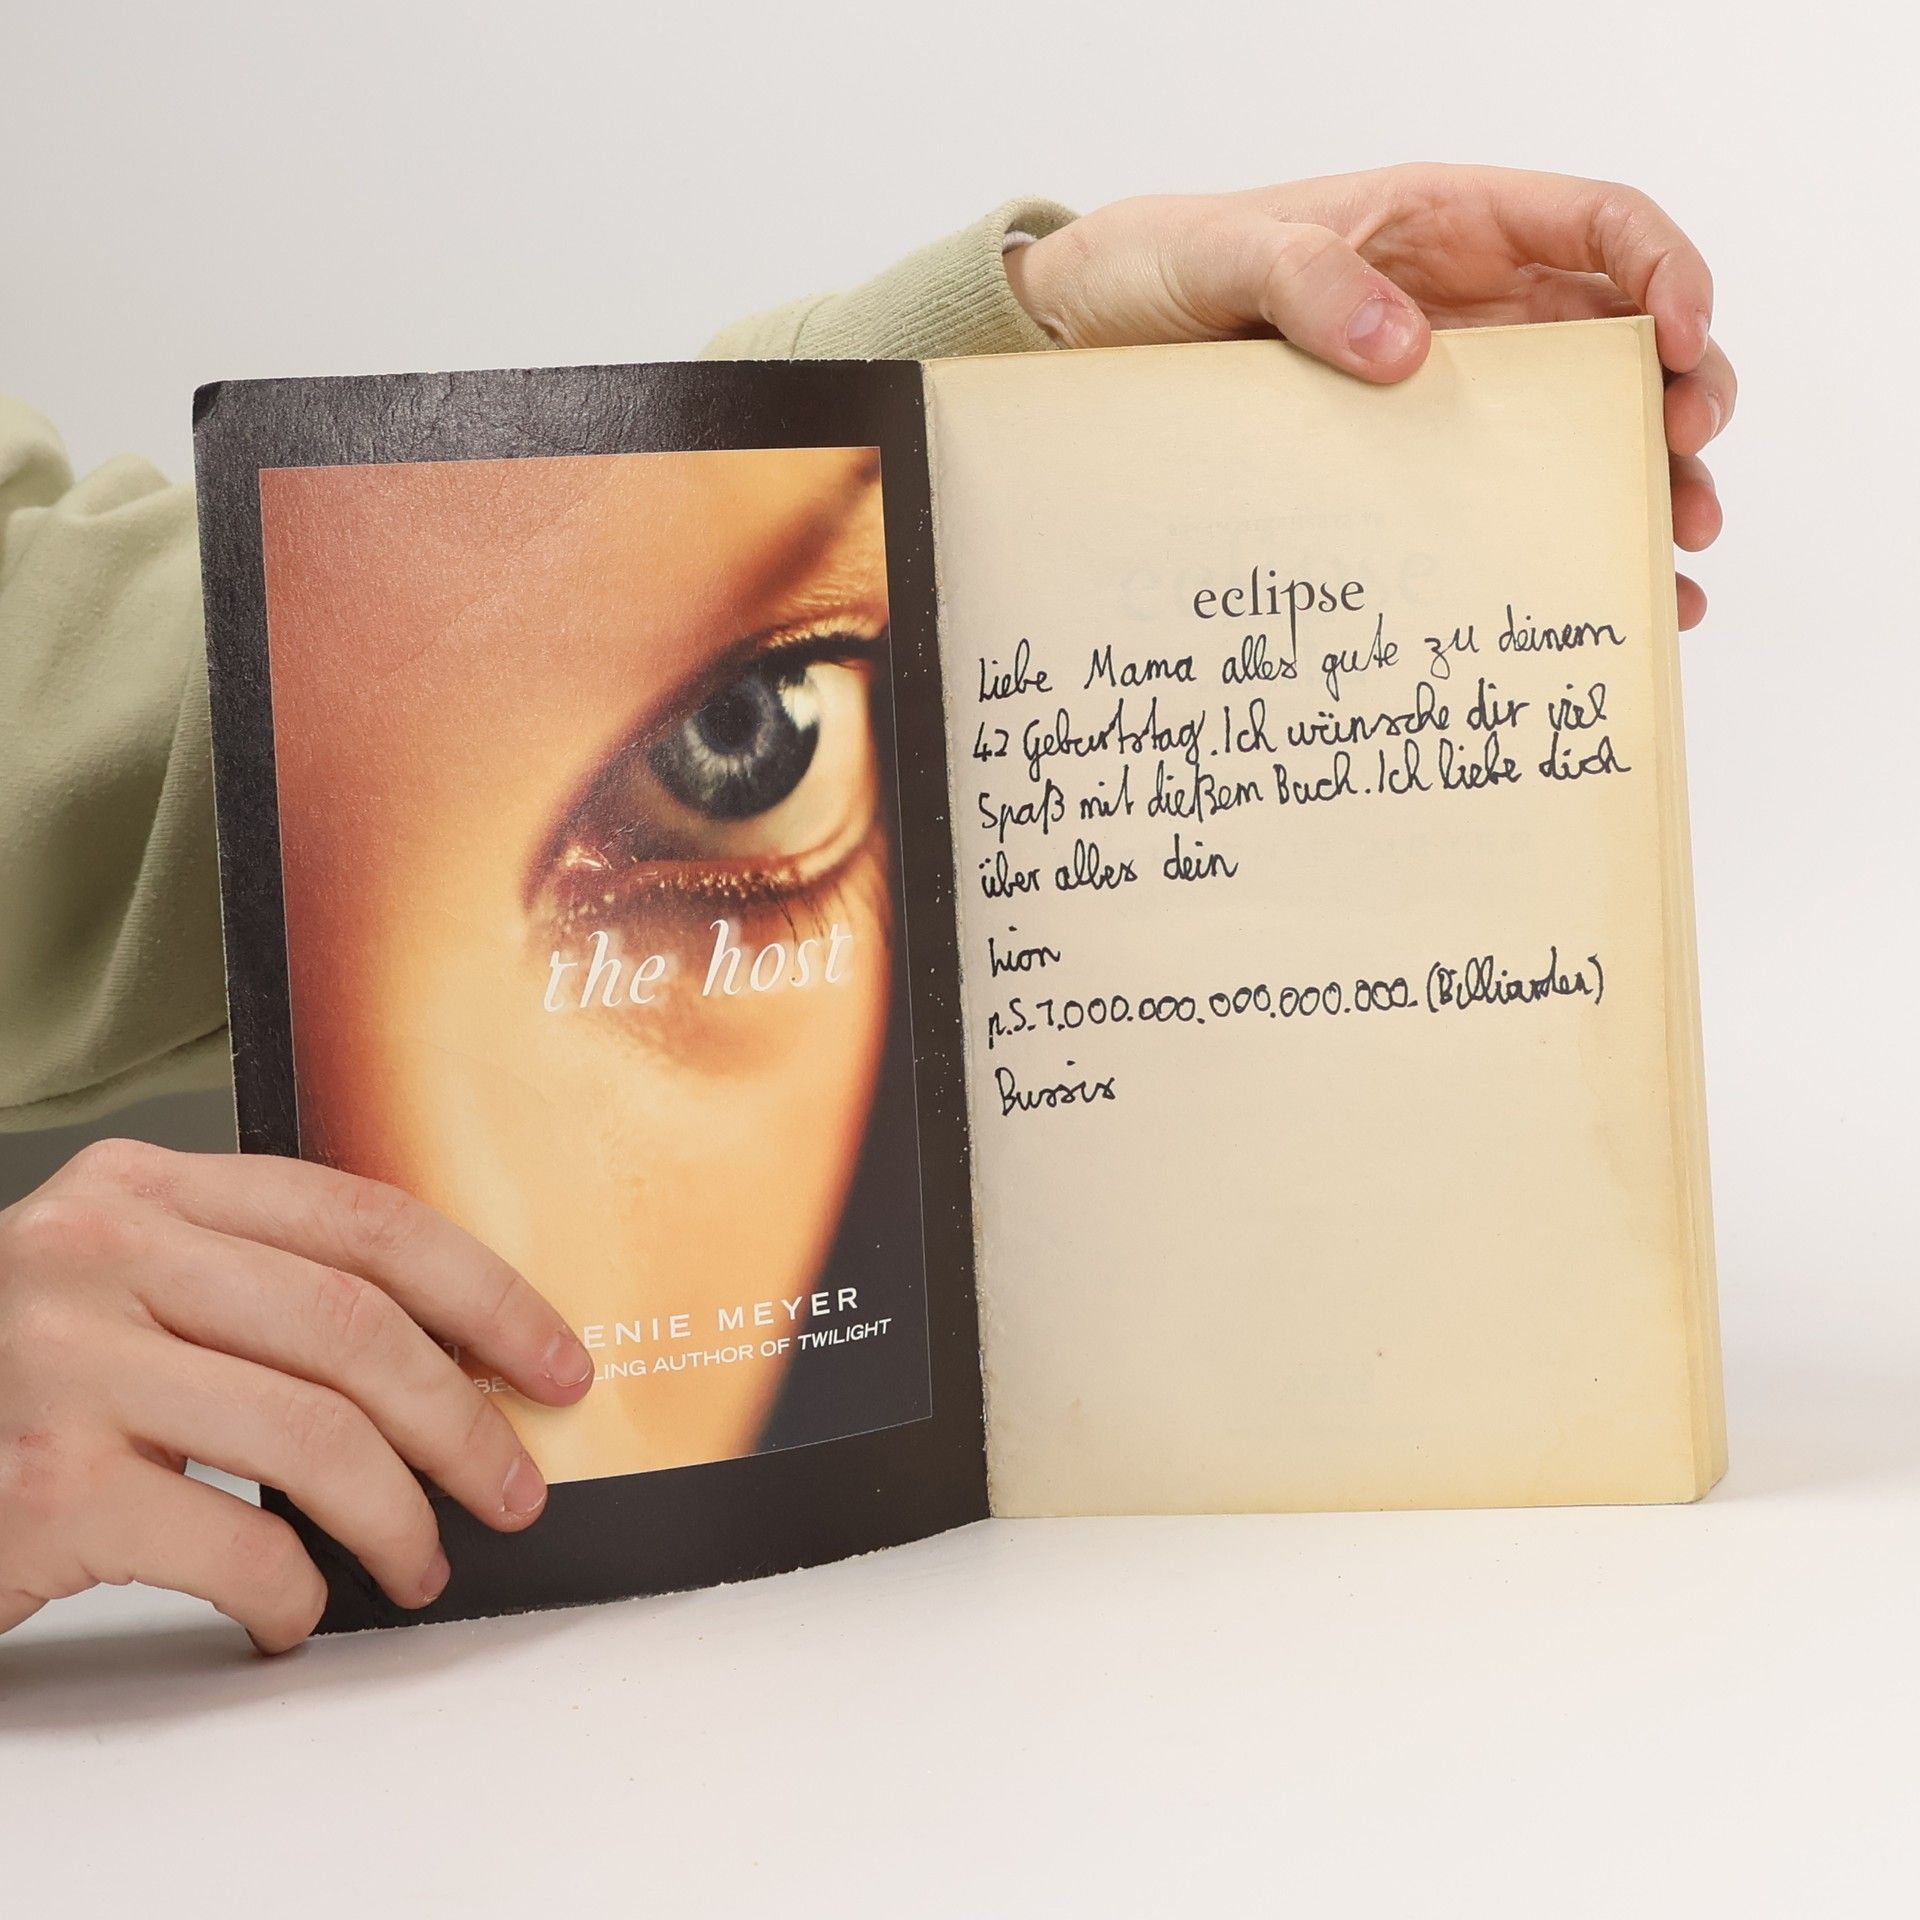 the host
ENIE MEYER
BE LING AUTHOR OF TWILIGHT
eclipse
Liebe Mama alles gute zu deinem
42 Geburtstag. Ich wünsche dir viel
Spaß mit dießem Buch. Ich liebe dich
über alles dein
Lion
p.S. 1.000.000.000.000.000. (Billiarden)
Bussis